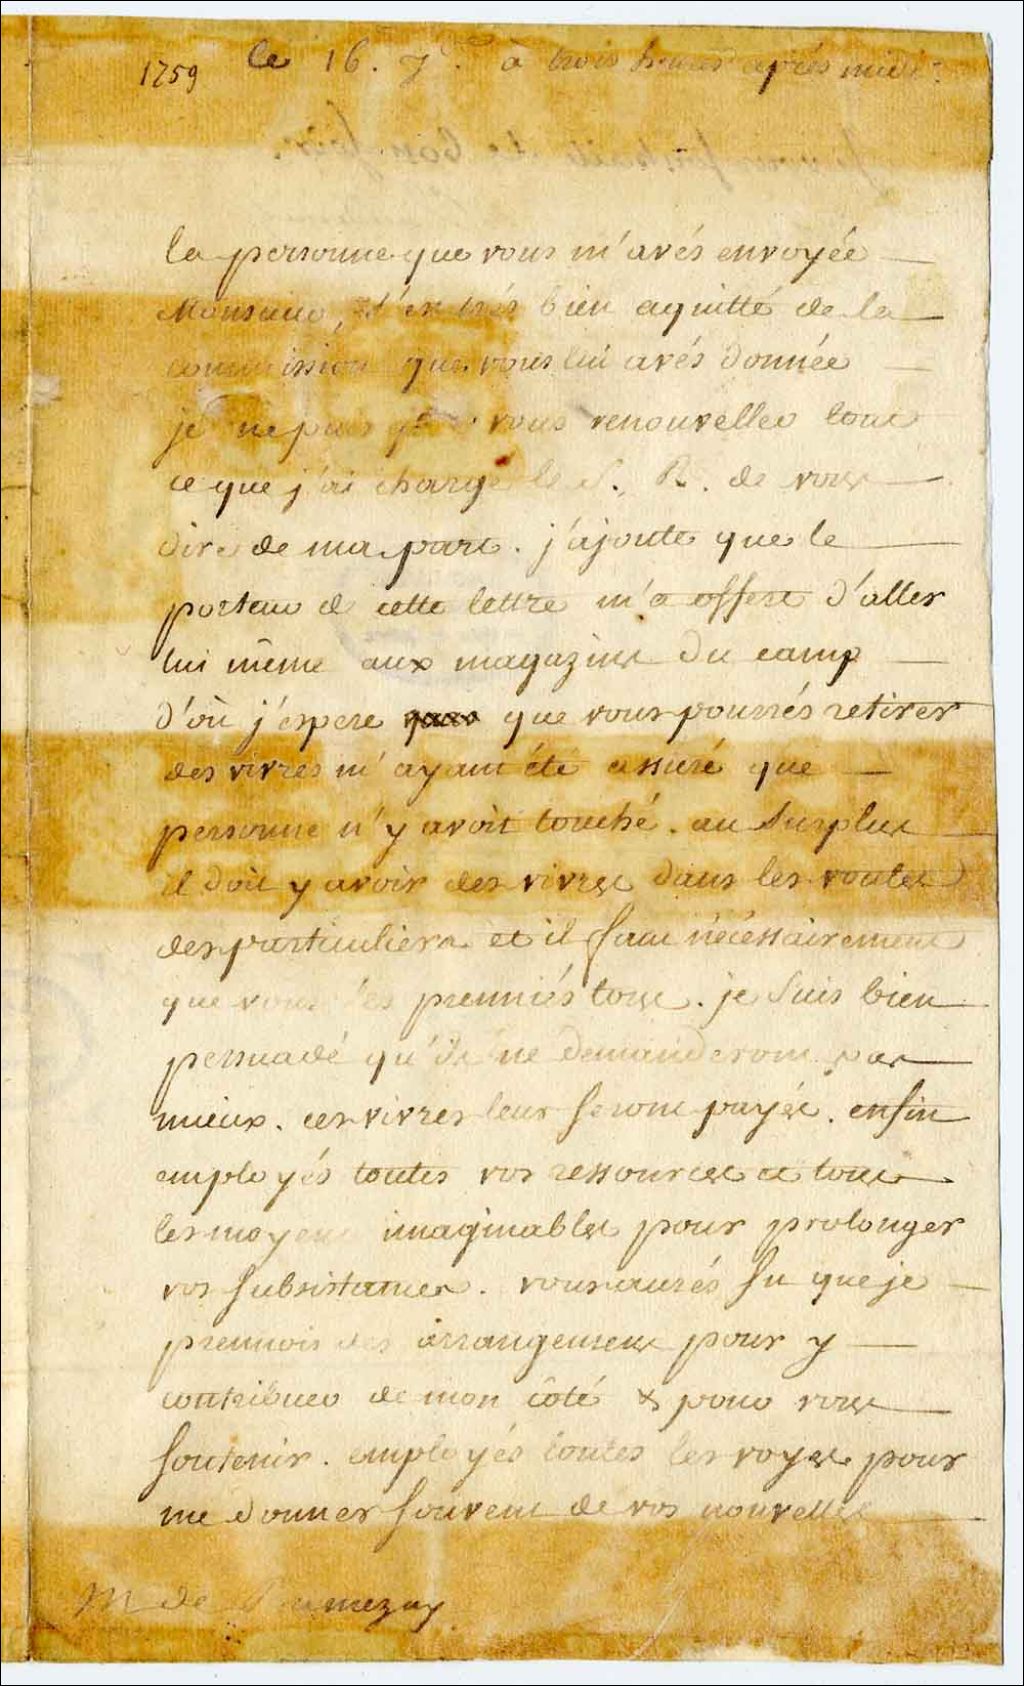 1759 le 16. 7. à trois heures après midi.
la personne que vous m'avés envoyée
Monsieur, s'est très bien aquitté de la
commission que vous lui avés donnée
je ne puis que vous renouveller tout
ce que j'ai chargé le S. R. de vous
dire de ma part. j'ajoute que le
porteur de cette lettre m'a offert d'aller
lui même aux magazins du camp
d'où j'espere que vous pourrés retirer
des vivres m'ayant été assuré que
personne n'y avoit touché. au surplus
il doit y avoir des vivres dans les voutes
des particuliers et il faut nécéssairement
que vous les premiés tous. je suis bien
persuadé qu'ils ne demanderont pas
mieux. ces vivres leur seront payés. enfin
employés toutes vos ressources et tous
les moyens imaginables pour prolonger
vos subsistances. vous aurés su que je
prennois des arrangemens pour y
contribuer de mon côté & pour vous
soutenir. employés toutes les voyes pour
me donner souvent de vos nouvelles
M de Ramezay